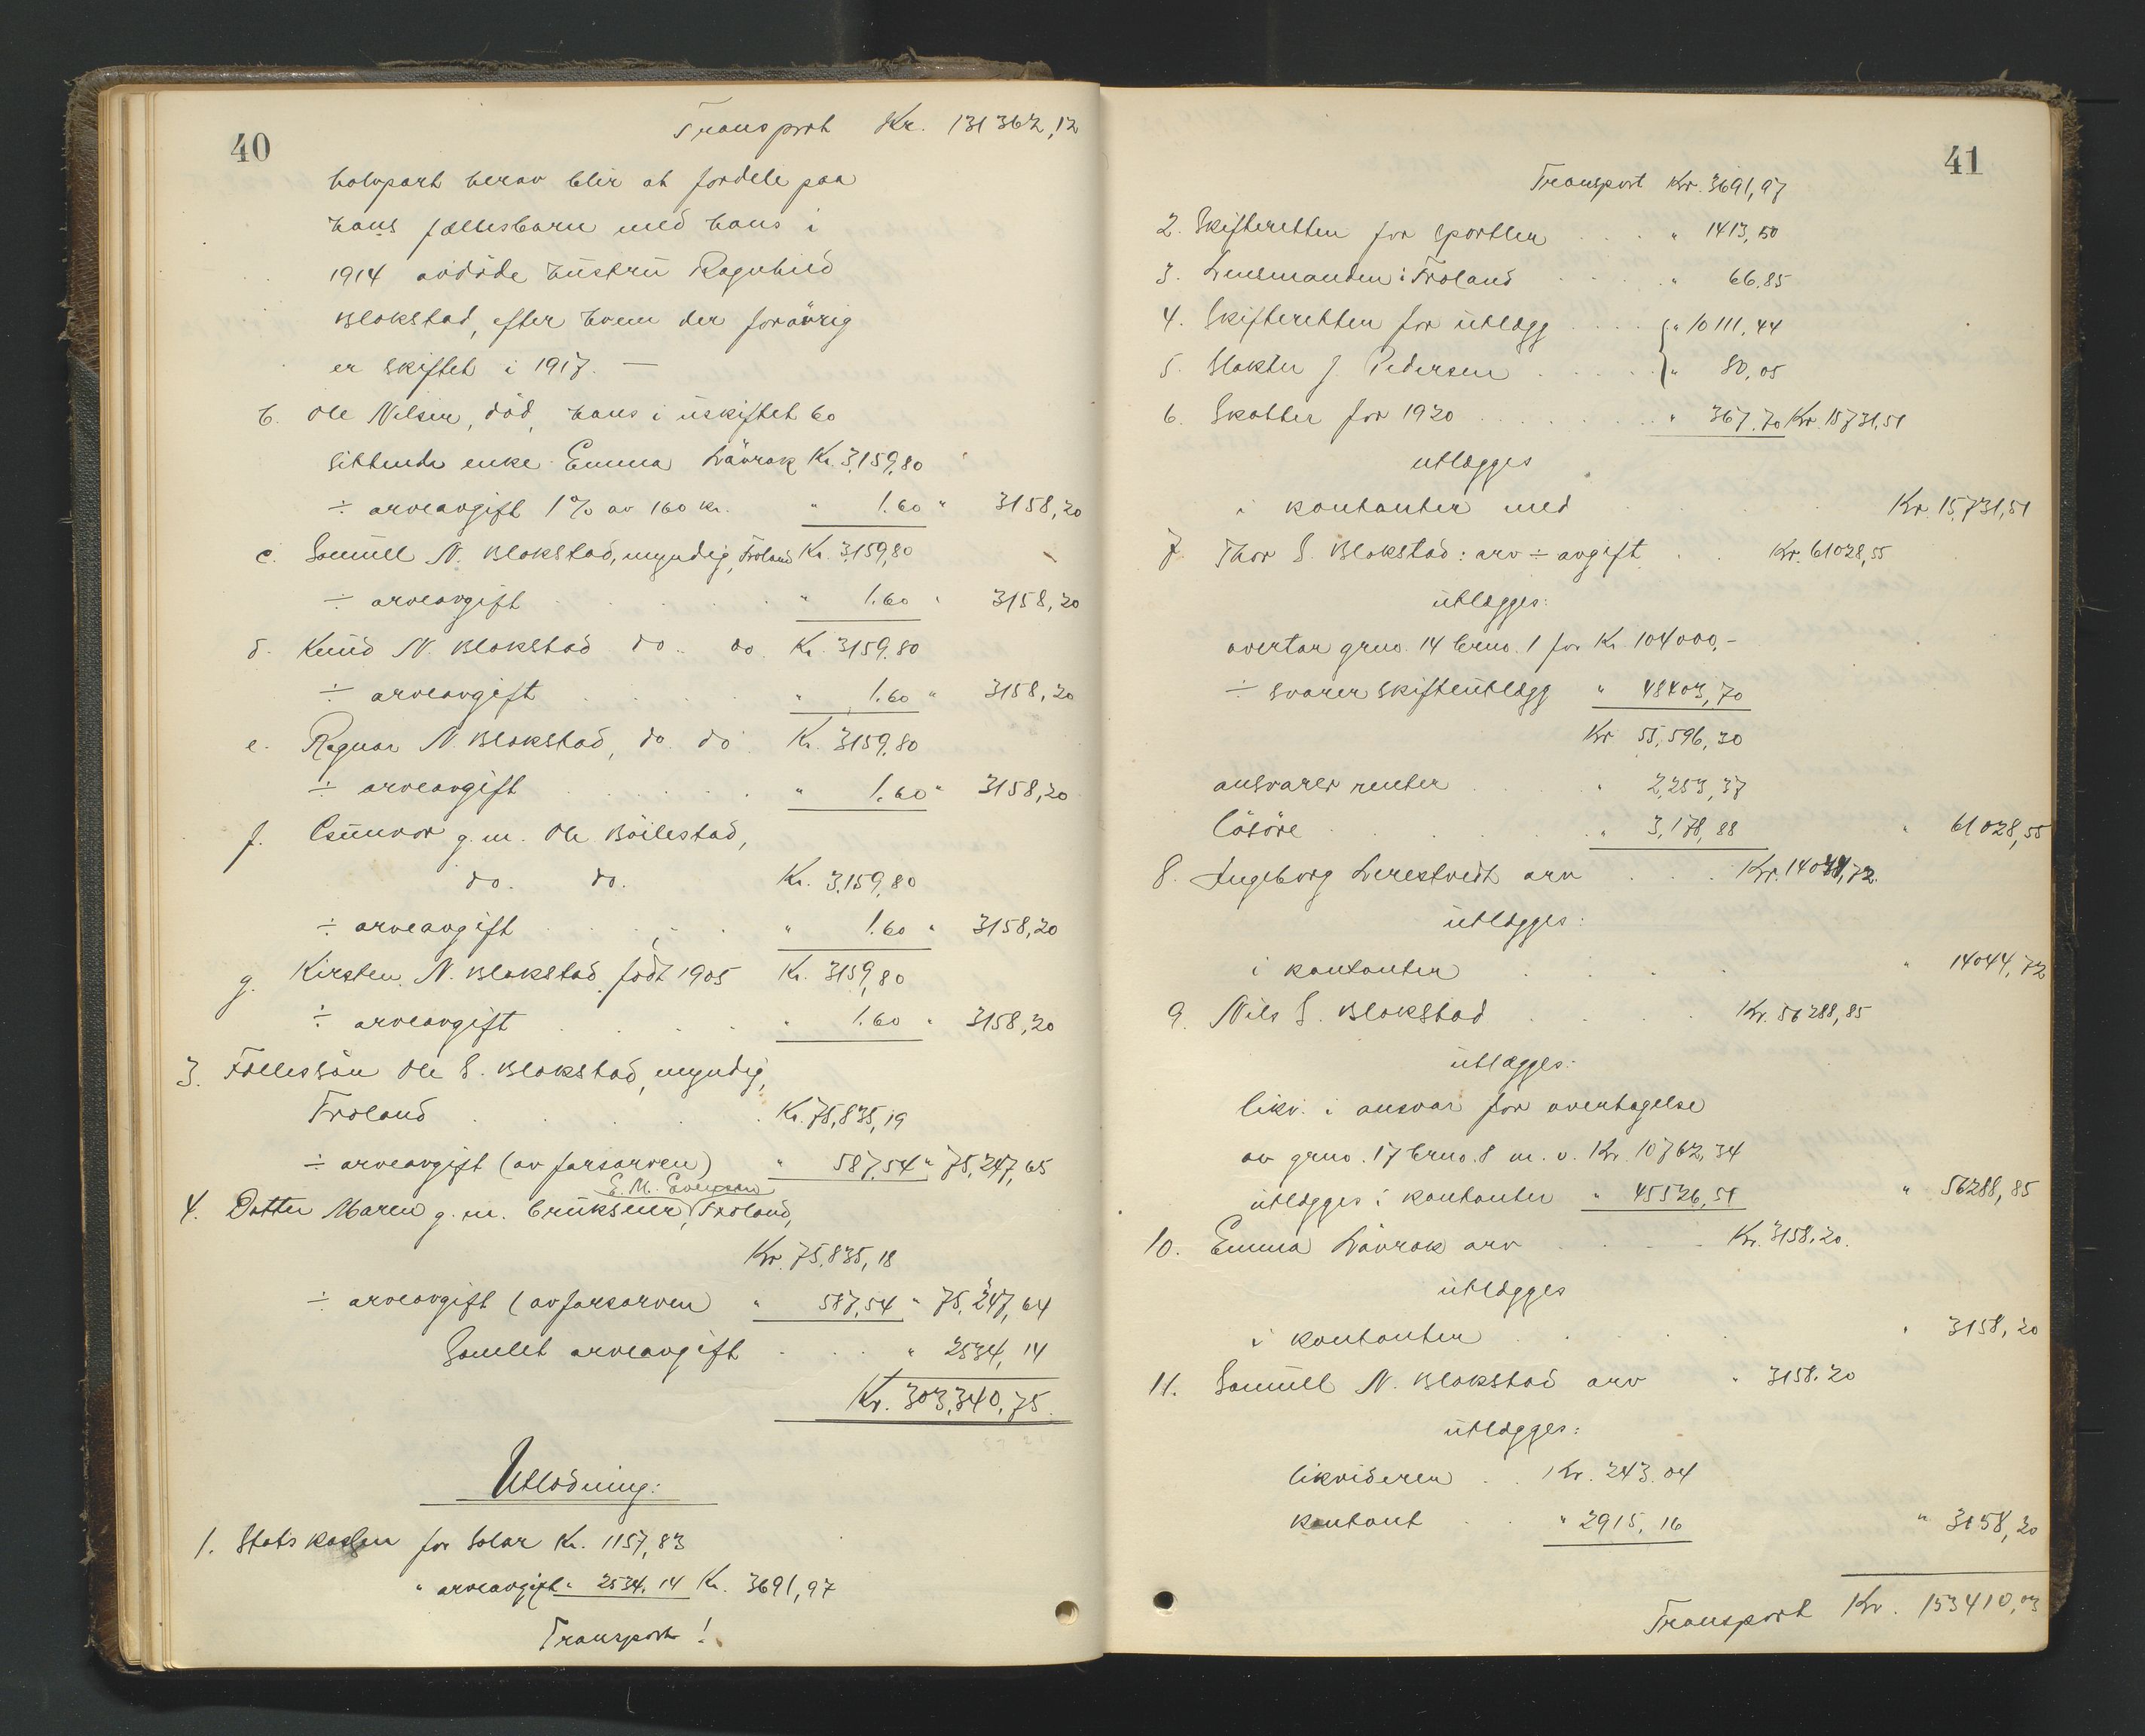 40
Transport Kr. 131362,12
halvpart herav blir at fordele paa
hans fællesbarn med hans i
1914 avdöde hustru Ragnhild
Blakstad, efter hvem der forövrig
er skiftet i 1917. —
b. Ole Nilsen, död, hans i uskiftet bo
sittende enke Emma Lövrak Kr. 3,159,80
÷ arveavgift 1% av 160 kr. " 1.60 " 3158,20
c. Samuel N. Blakstad, myndig, Froland Kr. 3,159,80
÷ arveavgift " 1.60 " 3158,20
d. Knud N. Blakstad do. do. Kr. 3159.80
÷ arveavgift " 1.60 " 3158,20
e. Ragnar N. Blakstad, do. do. Kr. 3159.80
÷ arveavgift " 1.60 " 3158,20
f. Gunvor g.m. Ole Böilestad,
do. do. Kr. 3,159,80
÷ arveavgift " 1.60 " 3158,20
g. Kirsten N. Blakstad, född 1905 Kr. 3159,80
÷ arveavgift " 1.60 " 3158,20
3. Fællessön Ole S. Blakstad, myndig,
Froland Kr. 75,835,19
÷ arveavgift (av farsarven) " 587.54 " 75,247,65
E. M. Evensen
4. Datter Maren g.m. brukseier, Froland,
Kr. 75,835,18
÷ arveavgift (av farsarven) " 587,54 " 75,247,64
Samlet arveavgift " 2534,14
Kr. 303,340,75.
Utlodning:
1. Statskassen for Salar Kr. 1157,83
" arveavgift " 2534.14 Kr. 3691,97
Transport!
41
Transport Kr. 3691,97
2. Skifteretten for sportler " 1413,50
3. Lensmanden i Froland " 66.85
4. Skifteretten for utlægg " 10111,44
5. Slakter J. Pedersen " 80,05
6. Skatter for 1920 " 367.70 Kr. 15731,51
utlægges
i kontanter med Kr. 15,731,51
7. Thor S. Blakstad: arv ÷ avgift Kr. 61028,55
utlægges:
overtar grno. 14 brno. 1 for Kr. 104000,-
÷ svarer skifteutlægg " 48403,70
Kr 55,596,30
ansvarer renter " 2,253,37
lösöre " 3,178,88 " 61028,55
8. Ingeborg Lerestvedt arv Kr. 14044,72.
utlægges:
i kontanter " 14044,72
9. Nils S. Blakstad Kr. 56288,85
utlægges:
likv. i ansvar for overtagelse
av grno. 17 brno. 8 m. v. Kr. 10762,34
utlægges i kontanter " 45526,51 " 56288,85
10. Emma Lövrak arv Kr. 3158,20.
utlægges
i kontanter " 3158,20
11. Samuel N. Blakstad arv " 3158.20
utlægges:
likviderer Kr. 243.04
kontant " 2915,16 " 3158,20
Transport Kr. 153410,03